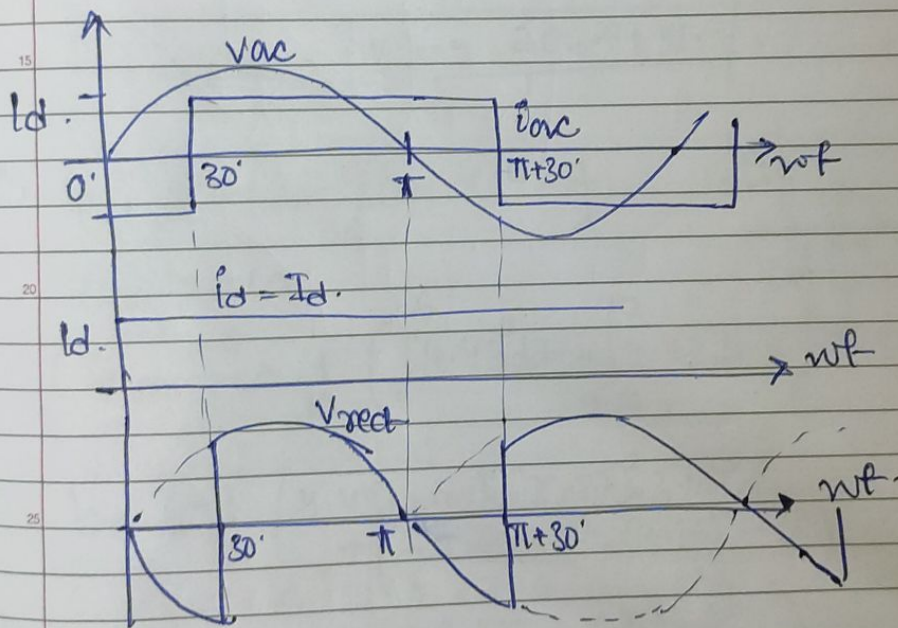 15
Vac
Id.
iac
0' 30' π π+30' wt
20
id = Id.
Id.
wt
Vrect
wt.
25
30' π π+30'